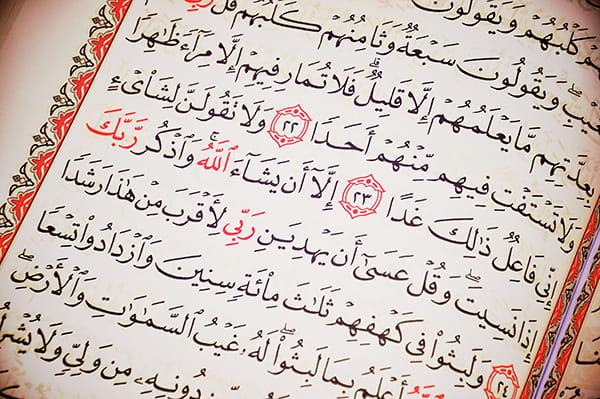 كَلۡبُهُمۡ وَيَقُولُونَ
وَيَقُولُونَ سَبۡعَةٞ وَثَامِنُهُمۡ كَلۡبُهُمۡۚ قُل
بِعِدَّتِهِم مَّا يَعۡلَمُهُمۡ إِلَّا قَلِيلٞۗ فَلَا تُمَارِ فِيهِمۡ إِلَّا مِرَآءٗ ظَٰهِرٗا
وَلَا تَسۡتَفۡتِ فِيهِم مِّنۡهُمۡ أَحَدٗا ٢٢ وَلَا تَقُولَنَّ لِشَاْيۡءٍ
إِنِّي فَاعِلٞ ذَٰلِكَ غَدًا ٢٣ إِلَّآ أَن يَشَآءَ ٱللَّهُۚ وَٱذۡكُر رَّبَّكَ
إِذَا نَسِيتَۖ وَقُلۡ عَسَىٰٓ أَن يَهۡدِيَنِ رَبِّي لِأَقۡرَبَ مِنۡ هَٰذَا رَشَدٗا
٢٤ وَلَبِثُواْ فِي كَهۡفِهِمۡ ثَلَٰثَ مِاْئَةٖ سِنِينَ وَٱزۡدَادُواْ تِسۡعٗا
أَعۡلَمُ بِمَا لَبِثُواْۖ لَهُۥ غَيۡبُ ٱلسَّمَٰوَٰتِ وَٱلۡأَرۡضِۖ
دُونِهِۦ مِن وَلِيّٖ وَلَا